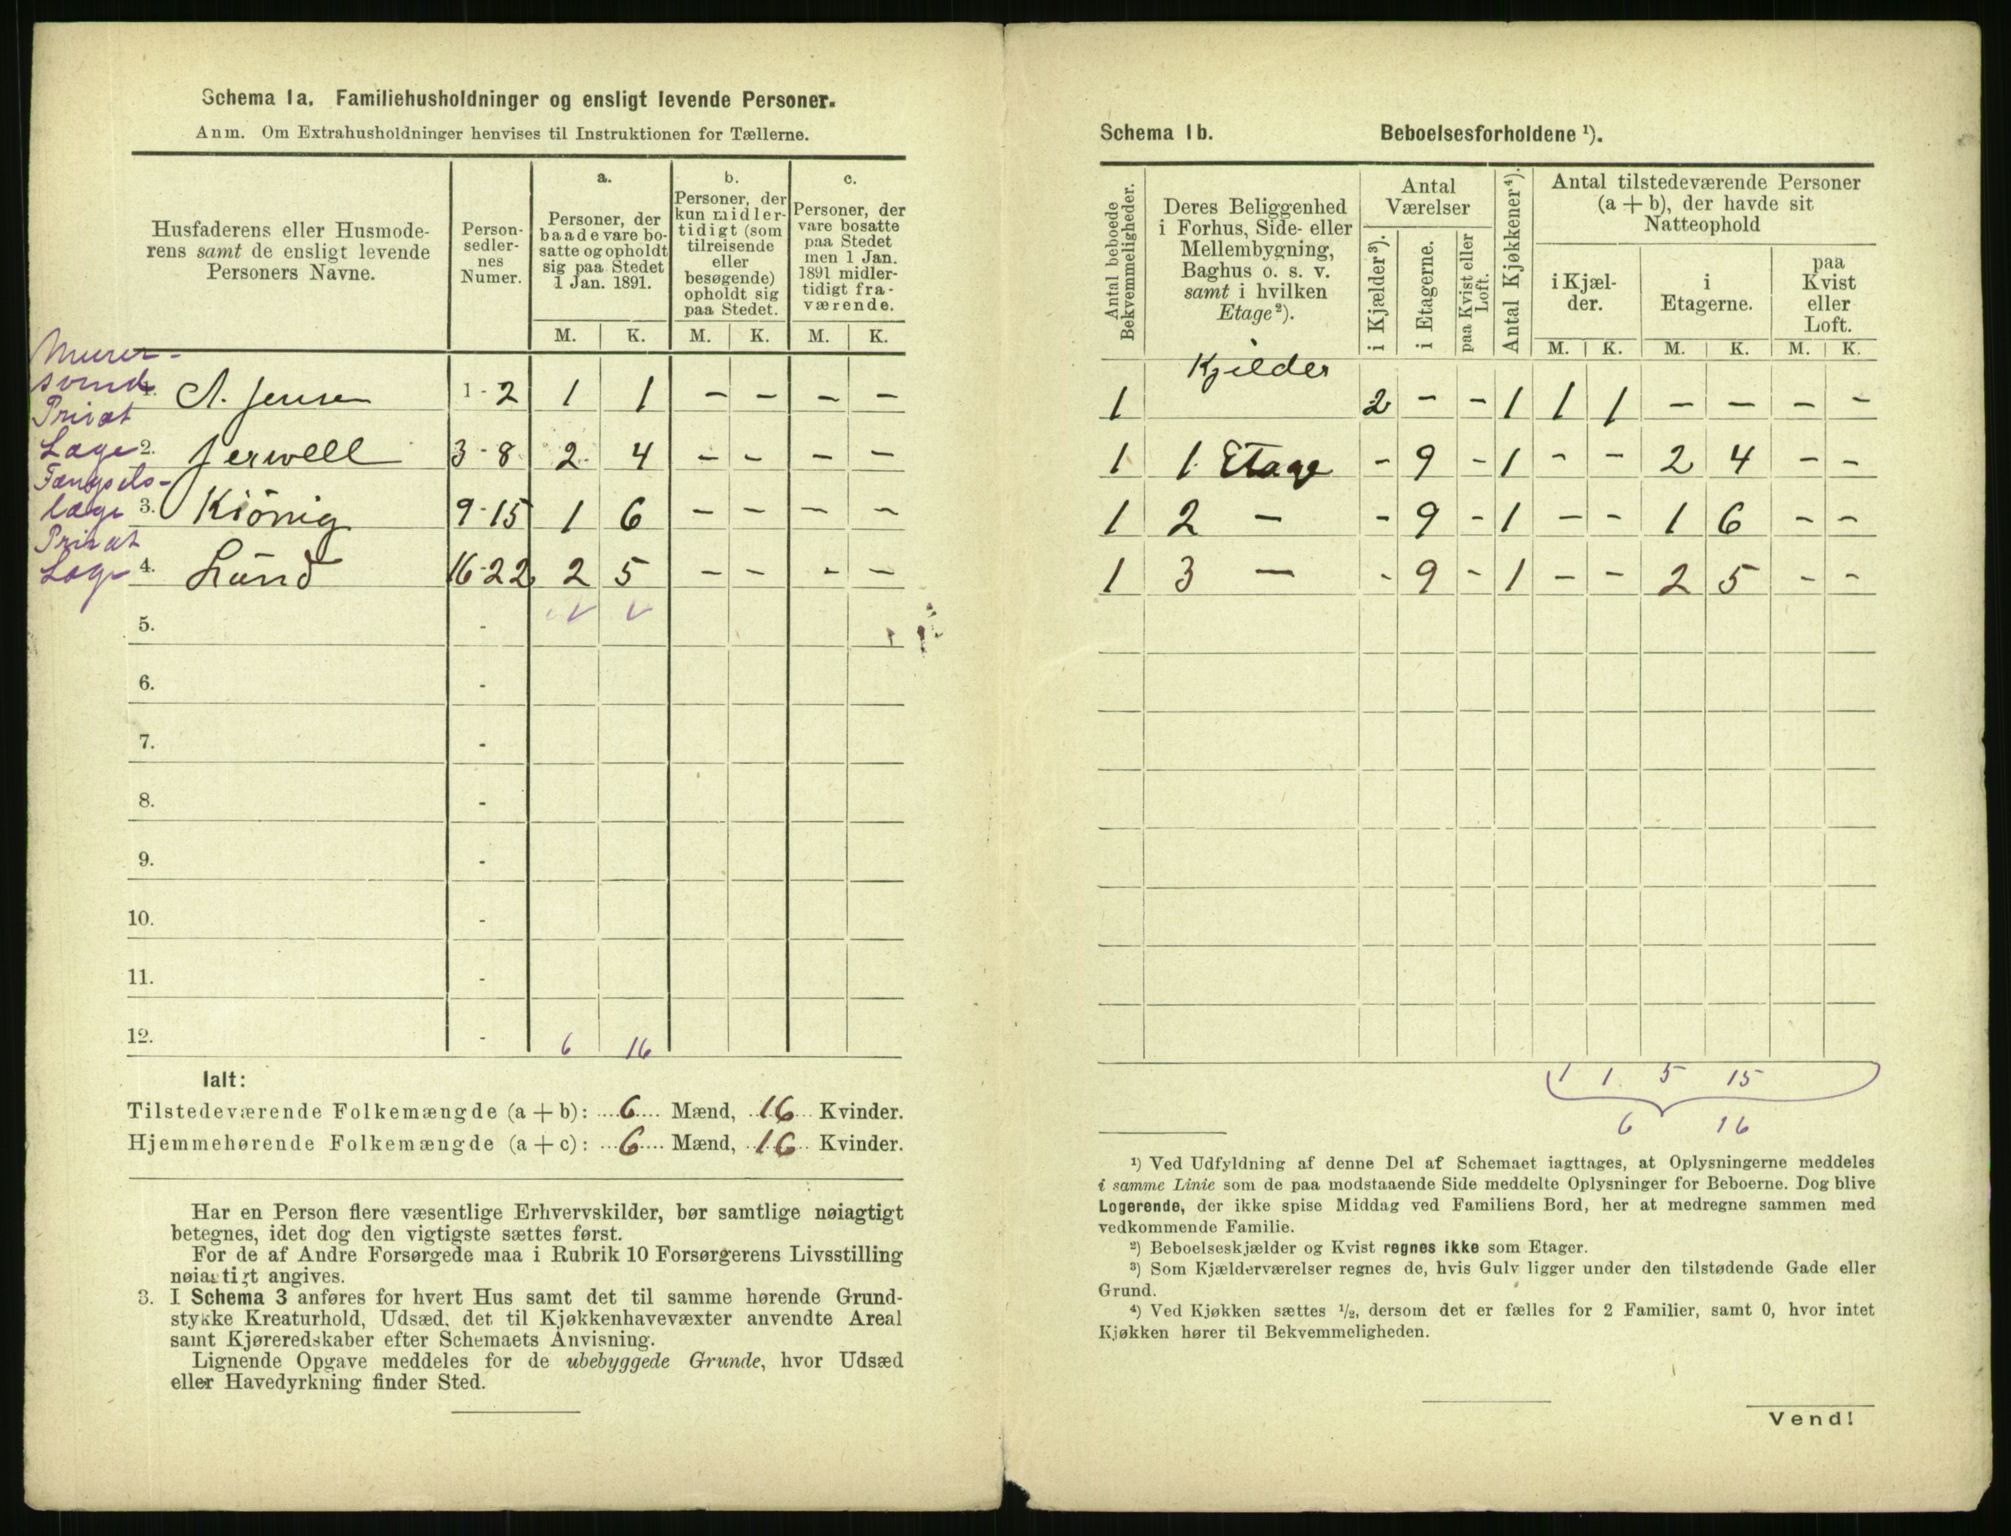 Schema 1a. Familiehusholdninger og ensligt levende Personer.
Anm. Om Extrahusholdninger henvises til Instruktionen for Tællerne.
Husfaderens eller Husmoderens samt de ensligt levende Personers Navne.
Personsedlernes Numer.
a. Personer, der baade vare bosatte og opholdt sig paa Stedet 1 Jan. 1891.
b. Personer, der kun midlertidigt (som tilreisende eller besøgende) opholdt sig paa Stedet.
c. Personer, der vare bosatte paa Stedet men 1 Jan. 1891 midlertidigt fraværende.
M. K. M. K. M. K.
Murersvend 1. A. Jensen 1-2 1 1 – – – –
Privat Læge 2. Jervell 3-8 2 4 – – – –
Fængselslæge 3. Kiönig 9-15 1 6 – – – –
Privat Læge 4. Lünd 16-22 2 5 – – – –
5. -
6. -
7. -
8. -
9. -
10. -
11. -
12. - 6 16
Ialt:
Tilstedeværende Folkemængde (a + b): 6 Mænd, 16 Kvinder.
Hjemmehørende Folkemængde (a + c): 6 Mænd, 16 Kvinder.
Har en Person flere væsentlige Erhvervskilder, bør samtlige nøiagtigt
betegnes, idet dog den vigtigste sættes først.
For de af Andre Forsørgede maa i Rubrik 10 Forsørgerens Livsstilling
nøiagtigt angives.
3. I Schema 3 anføres for hvert Hus samt det til samme hørende Grund-
stykke Kreaturhold, Udsæd, det til Kjøkkenhavevæxter anvendte Areal
samt Kjøreredskaber efter Schemaets Anvisning.
Lignende Opgave meddeles for de ubebyggede Grunde, hvor Udsæd
eller Havedyrkning finder Sted.
Schema 1b. Beboelsesforholdene ¹).
Antal beboede Bekvemmeligheder.
Deres Beliggenhed i Forhus, Side- eller Mellembygning, Baghus o. s. v. samt i hvilken Etage²).
Antal Værelser
i Kjælder³).
i Etagerne.
paa Kvist eller Loft.
Antal Kjøkkener⁴).
Antal tilstedeværende Personer (a + b), der havde sit Natteophold
i Kjælder.
i Etagerne.
paa Kvist eller Loft.
M. K. M. K. M. K.
1 Kjelder 2 – – 1 1 1 – – – –
1 1 Etage – 9 – 1 – – 2 4 – –
1 2 – – 9 – 1 – – 1 6 – –
1 3 – – 9 – 1 – – 2 5 – –
1 1 5 15
6 16
¹) Ved Udfyldning af denne Del af Schemaet iagttages, at Oplysningerne meddeles
i samme Linie som de paa modstaaende Side meddelte Oplysninger for Beboerne. Dog blive
Logerende, der ikke spise Middag ved Familiens Bord, her at medregne sammen med
vedkommende Familie.
²) Beboelseskjælder og Kvist regnes ikke som Etager.
³) Som Kjælderværelser regnes de, hvis Gulv ligger under den tilstødende Gade eller
Grund.
⁴) Ved Kjøkken sættes ½, dersom det er fælles for 2 Familier, samt 0, hvor intet
Kjøkken hører til Bekvemmeligheden.
Vend!